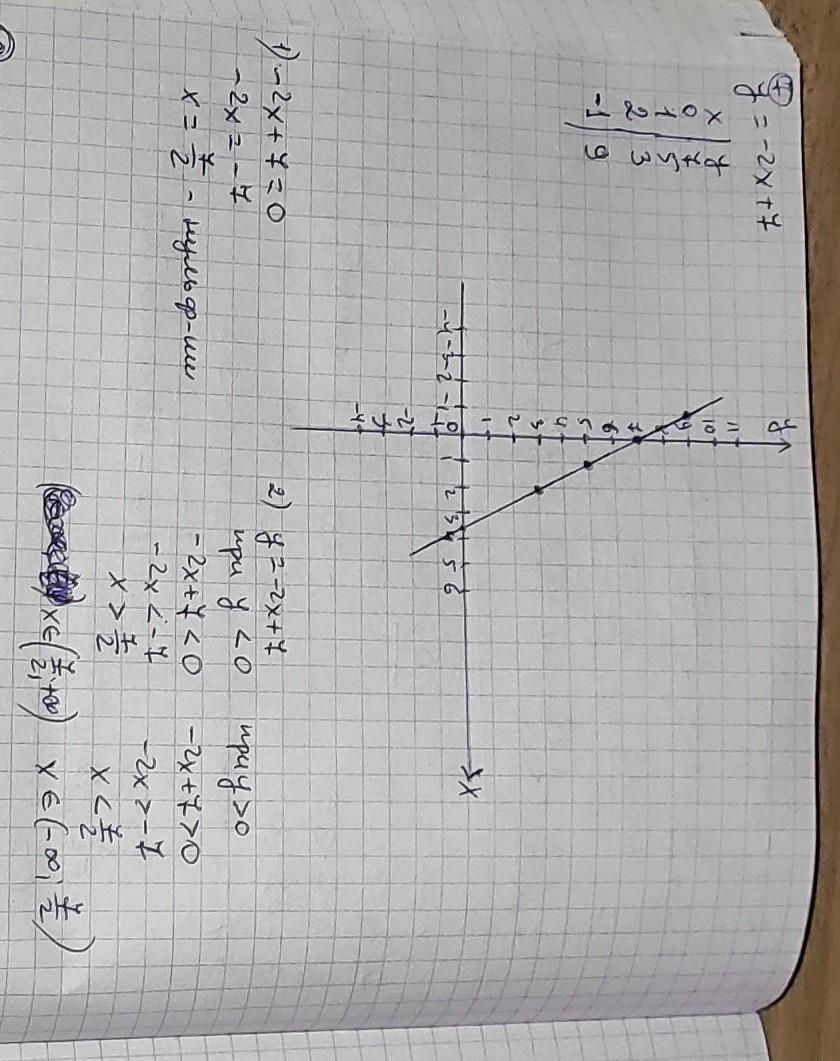 ⑦
y = -2x+7
x | y
0 | 7
1 | 5
2 | 3
-1 | 9
y
11
10
9
8
7
6
5
4
3
2
1
-4 -3 -2 -1 0 1 2 3 4 5 6 x
-1
-2
-3
-4
1) -2x+7=0
-2x=-7
x = 7/2 - нуль ф-ии
2) y=-2x+7
при y<0 при y>0
-2x+7<0 -2x+7>0
-2x<-7 -2x>-7
x > 7/2 x < 7/2
x∈(7/2; +∞) x∈(-∞; 7/2)